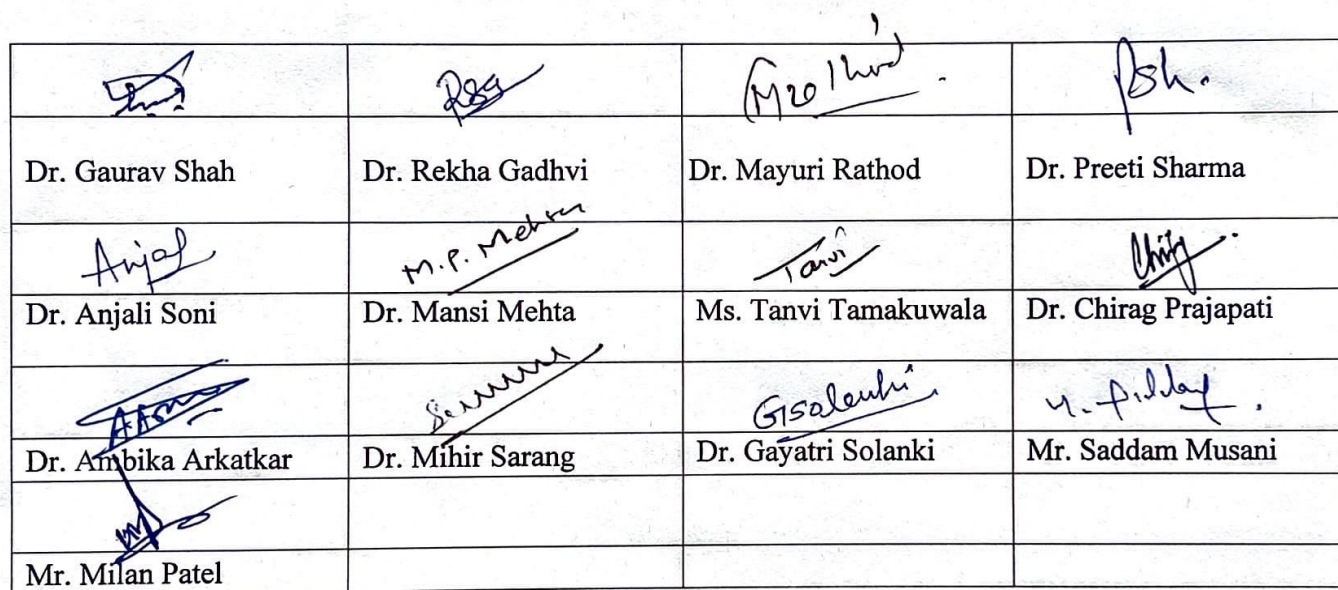 Dr. Gaurav Shah Dr. Rekha Gadhvi Dr. Mayuri Rathod Dr. Preeti Sharma
Anjal M.P. Mehta Tanvi
Dr. Anjali Soni Dr. Mansi Mehta Ms. Tanvi Tamakuwala Dr. Chirag Prajapati
GSolanki
Dr. Ambika Arkatkar Dr. Mihir Sarang Dr. Gayatri Solanki Mr. Saddam Musani
Mr. Milan Patel